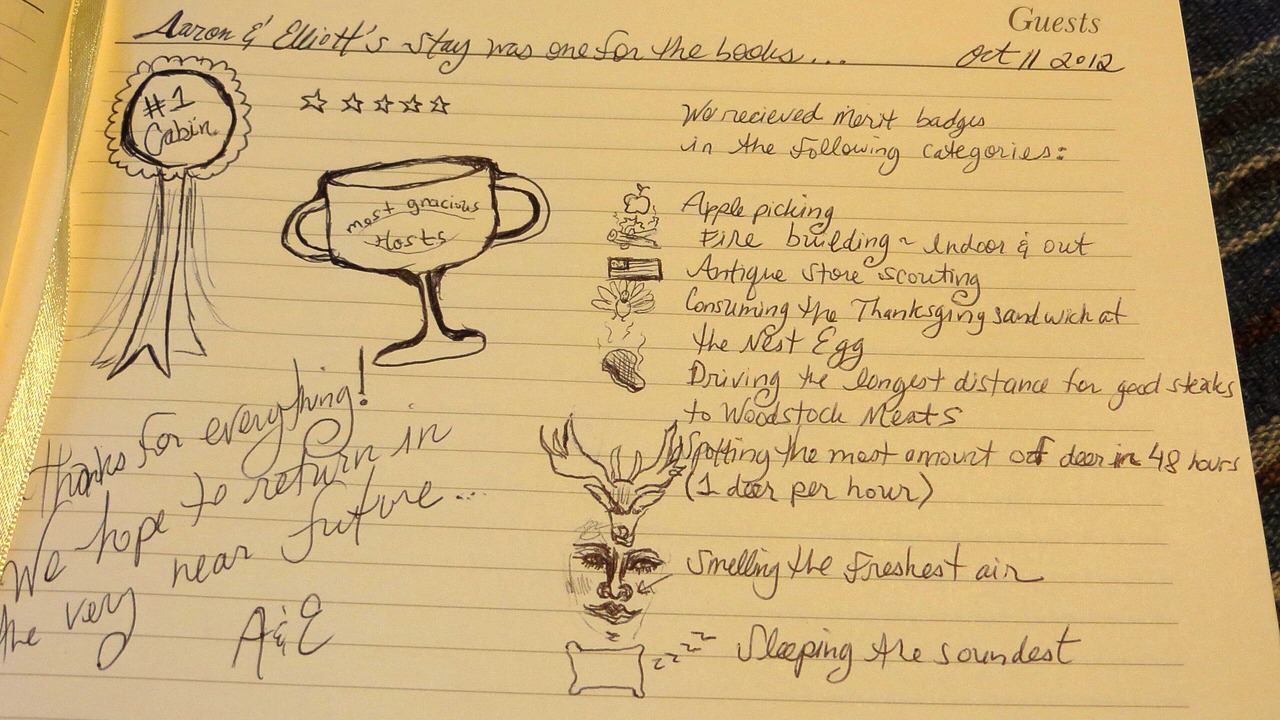 Guests
Aaron & Elliott's stay was one for the books...
Oct 11 2012
#1
Cabin
☆ ☆ ☆ ☆ ☆
most gracious
Hosts
We recieved merit badges
in the following categories:
Apple picking
Fire building ~ Indoor & out
Antique store scouting
Consuming the Thanksgiving sandwich at
the Nest Egg
Driving the longest distance for good steaks
to Woodstock Meats
Spotting the most amount of deer in 48 hours
(1 deer per hour)
Smelling the freshest air
zzzz Sleeping the soundest
Thanks for everything!
We hope to return in
the very near future...
A & E